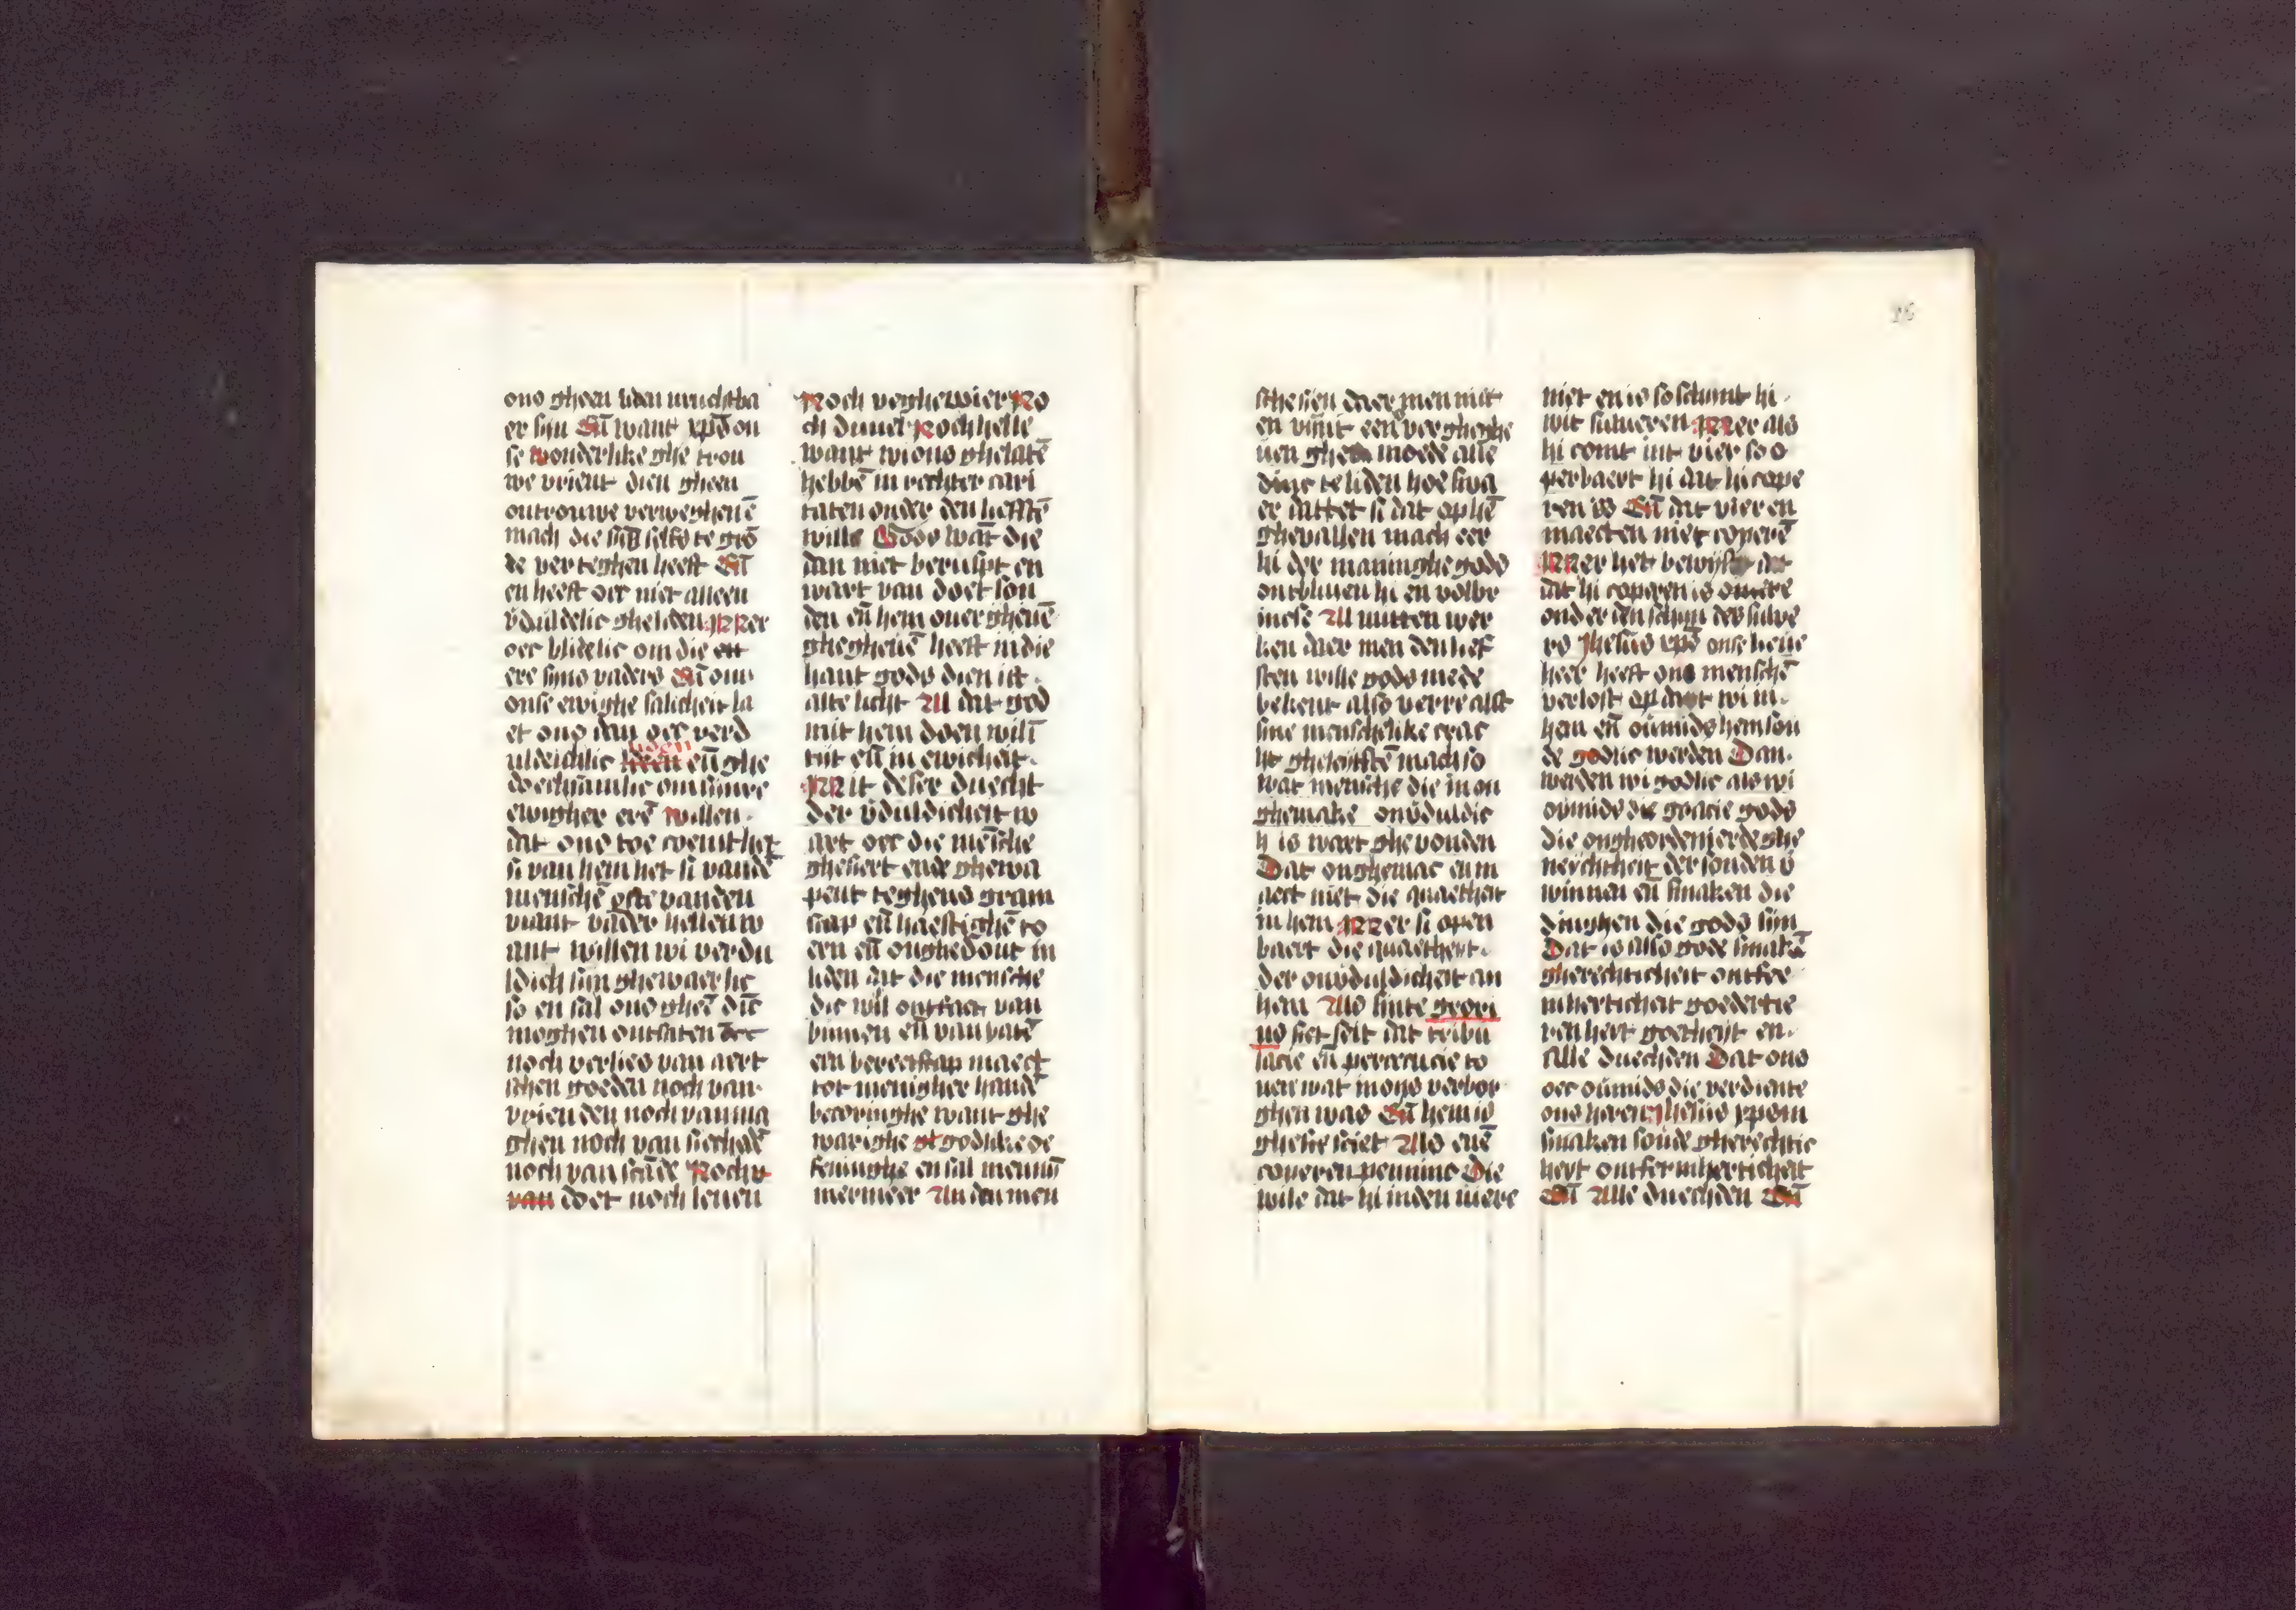 ons gheen liden vruchtba
er sijn Eñ want xp̄s on
se wonderlike ghe trou
we vrient dien gheen
ontrouwe verweghenē
mach die sijs selfs te gro
de verteghen heeft Eñ
en heeft oec niet alleen
v̄duldelic gheleden Mer
oec blidelic om die
ere sijns vaders Eñ om
onse ewighe salicheit la
et ons dan oec verd
uldichlic liden eñ ghe
doechsamlic om sijnre
ewigher erē willen
dat ons toe coemt het
si van hem het si vandē
menschē ofte vanden
viant vader hellen w
ant willen wi verdu
ldich sijn ghewaerlic
so en sal ons gheē dīc
moghen ontsaten
noch verlies van aert
schen goeden noch van
vrienden noch van ma
ghen noch van siechedē
noch van scāde Noch
van doet noch leuen
Noch veghewier No
ch duuel Noch helle
want wi ons ghelatē
hebbē in rechter cari
taten onder den liefstē
wille Gods wāt die
dan niet beruspt en
wart van doet son
den eñ hem ouer gheuē
ghegheuē heeft in die
hant gods dien ist
alte licht Al dat god
mit hem doen will
tijt eñ in ewicheit
Mit deser duecht
der v̄duldicheit w
art oec die mēsche
ghesiert ende ghewa
pent teghens gram
scap eñ haestighē to
ern eñ onghedout in
liden dat die mensche
die wil ontfaet van
binnen eñ van butē
een bereetscap maect
tot menigher handē
becoringhe want ghe
warighe godlike oe
feninghe en sal menni
mermeer An den men
sche sien daer men niet
en vint een ver gheghe
uen moede alle
dinc te liden hoe swa
er dattet si dat op hē
ghevallen mach eer
hi der maninghe gods
ontbliuen hi en volbr
inese Al mitten wer
ken daer men den lief
sten wille gods mede
bekent also verre alst
sine menschelike crac
ht gheleystē mach so
wat mensche die in on
ghemake onv̄duldic
h is waert ghevonden
Dat onghemac en m
aect niet die quaetheit
in hem Mer si open
baert die quaetheyt
der onv̄duldicheit an
hem Als sinte gregori
us hier seit dat tribu
lacie eñ persecucie to
nen wat in ons verbor
ghen was Eñ hem is
ghesciet Als enē
coperen pennine Die
wile dat hi inden viere
niet en is so schijnt hi
wit silueren Mer als
hi comt int vier so o
penbaert hi dat hi cope
ren is Eñ dat vier en
maecten niet coperē
Mer het bewijst
dat hi coperen is
onder den schijn des silue
rs Jhesus xp̄s onse lieue
heer heeft ons menschē
verlost op dat wi in
hem eñ ōumids hem son
de godlic werden Dan
werden wi godlic als wi
ōumids die gracie gods
die ongheordenierde ghe
neychtheit der sonden v̄
winnen eñ smaken die
dinghen die gods sijn
Dat is also gode smakē
gherechticheit ontfer
mherticheit goedertie
ren heit goetheyt en
Alle duechden Dat ons
oec ōumids die verdiente
ons heren Jhesus xpom
smaken sonde gherechtic
heyt ontfermherticheit
Eñ Alle duechden Eñ